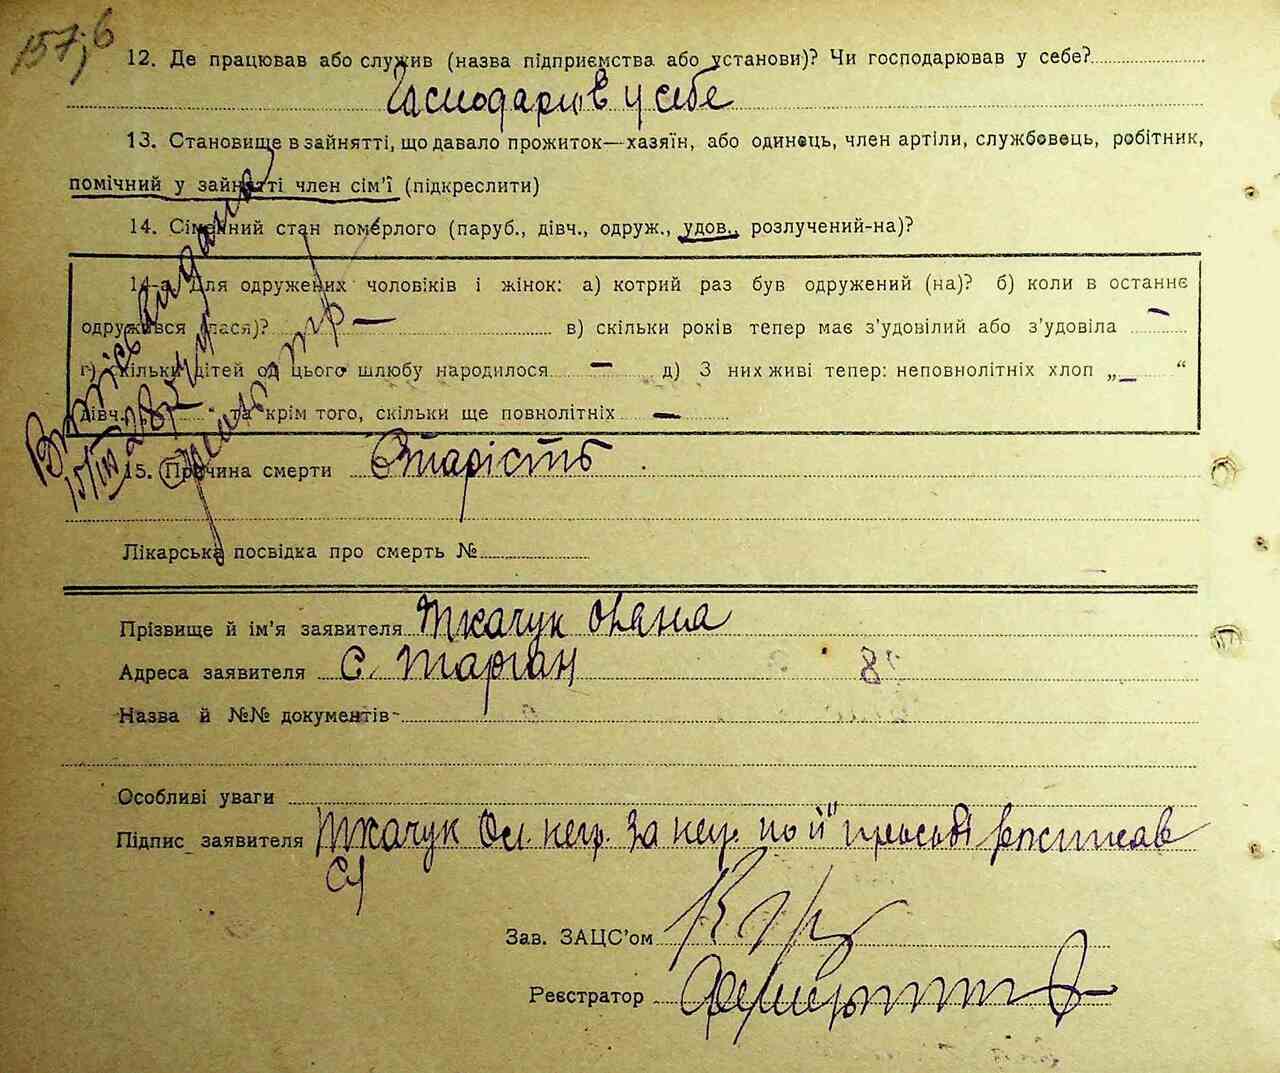 157,б
12. Де працював або служив (назва підприємства або установи)? Чи господарював у себе?
Господарив у себе
13. Становище в зайнятті, що давало прожиток—хазяїн, або одинець, член артіли, службовець, робітник,
помічний у зайнятті член сім'ї (підкреслити)
14. Сімейний стан померлого (паруб., дівч., одруж., удов., розлучений-на)?
14-а. Для одружених чоловіків і жінок: а) котрий раз був одружений (на)? б) коли в останнє
одружився (лася)? — в) скільки років тепер має з'удовілий або з'удовіла —
г) скільки дітей од цього шлюбу народилося — д) З них живі тепер: неповнолітніх хлоп „—“
дівч. та крім того, скільки ще повнолітніх —
15. Причина смерти Старість
Лікарська посвідка про смерть №
Прізвище й ім'я заявителя Ткачук
Адреса заявителя с. Тарган
Назва й №№ документів
Особливі уваги
Підпис заявителя Ткачук Ол. негр. За негр. по її просьбі
Зав. ЗАЦС'ом
Реєстратор